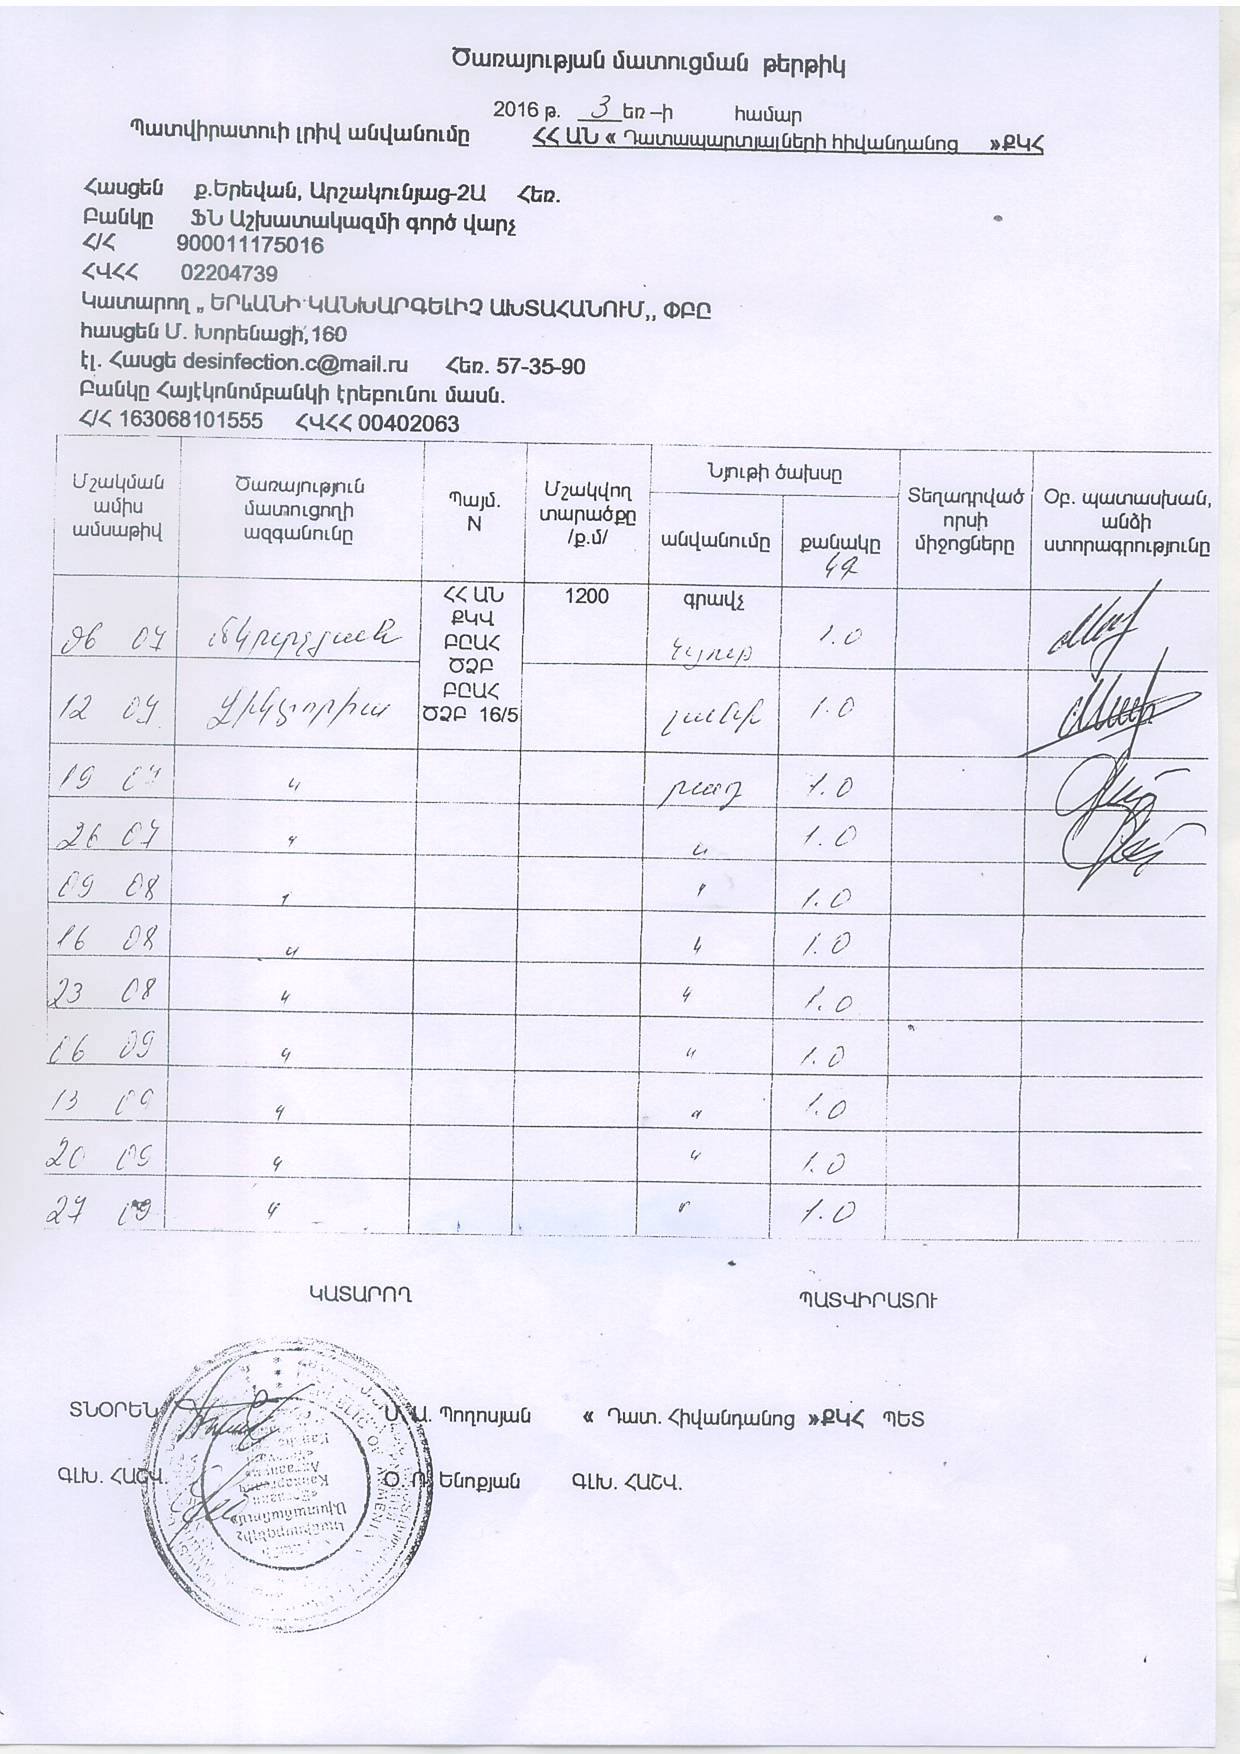 Ծառայության մատուցման թերթիկ
2016 թ. 3 եռ –ի համար
Պատվիրատուի լրիվ անվանումը ՀՀ ԱՆ « Դատապարտյալների հիվանդանոց »ՔԿՀ
Հասցեն ք.Երեվան, Արշակունյաց-2Ա Հեռ.
Բանկը ՖՆ Աշխատակազմի գործ վարչ
Հ/Հ 900011175016
ՀՎՀՀ 02204739
Կատարող „ ԵՐևԱՆԻ ԿԱՆԽԱՐԳԵԼԻՉ ԱԽՏԱՀԱՆՈՒՄ,, ՓԲԸ
հասցեն Մ. Խորենացի,160
էլ. Հասցե desinfection.c@mail.ru Հեռ. 57-35-90
Բանկը Հայէկոնոմբանկի էրեբունու մասն.
Հ/Հ 163068101555 ՀՎՀՀ 00402063
Մշակման ամիս ամսաթիվ Ծառայություն մատուցողի ազգանունը Պայմ. N Մշակվող տարածքը /ք.մ/ Նյութի ծախսը Տեղադրված որսի միջոցները Օբ. պատասխան, անձի ստորագրությունը
անվանումը քանակը կգ
06 07 Մկրտչյան ՀՀ ԱՆ ՔԿՎ ԲԸԱՀ ԾՁԲ ԲԸԱՀ ԾՁԲ 16/5 1200 գրավչ նյութ 1.0
12 07 Վիկտորիա 1.0
19 07 " 1.0
26 07 " " 1.0
09 08 " " 1.0
16 08 " " 1.0
23 08 " " 1.0
06 09 " " 1.0
13 09 " " 1.0
20 09 " " 1.0
27 09 " " 1.0
ԿԱՏԱՐՈՂ ՊԱՏՎԻՐԱՏՈՒ
ՏՆՕՐԵՆ Մ. Ա. Պողոսյան « Դատ. Հիվանդանոց »ՔԿՀ ՊԵՏ
ԳԼԽ. ՀԱՇՎ. Օ. Ռ. Ենոքյան ԳԼԽ. ՀԱՇՎ.